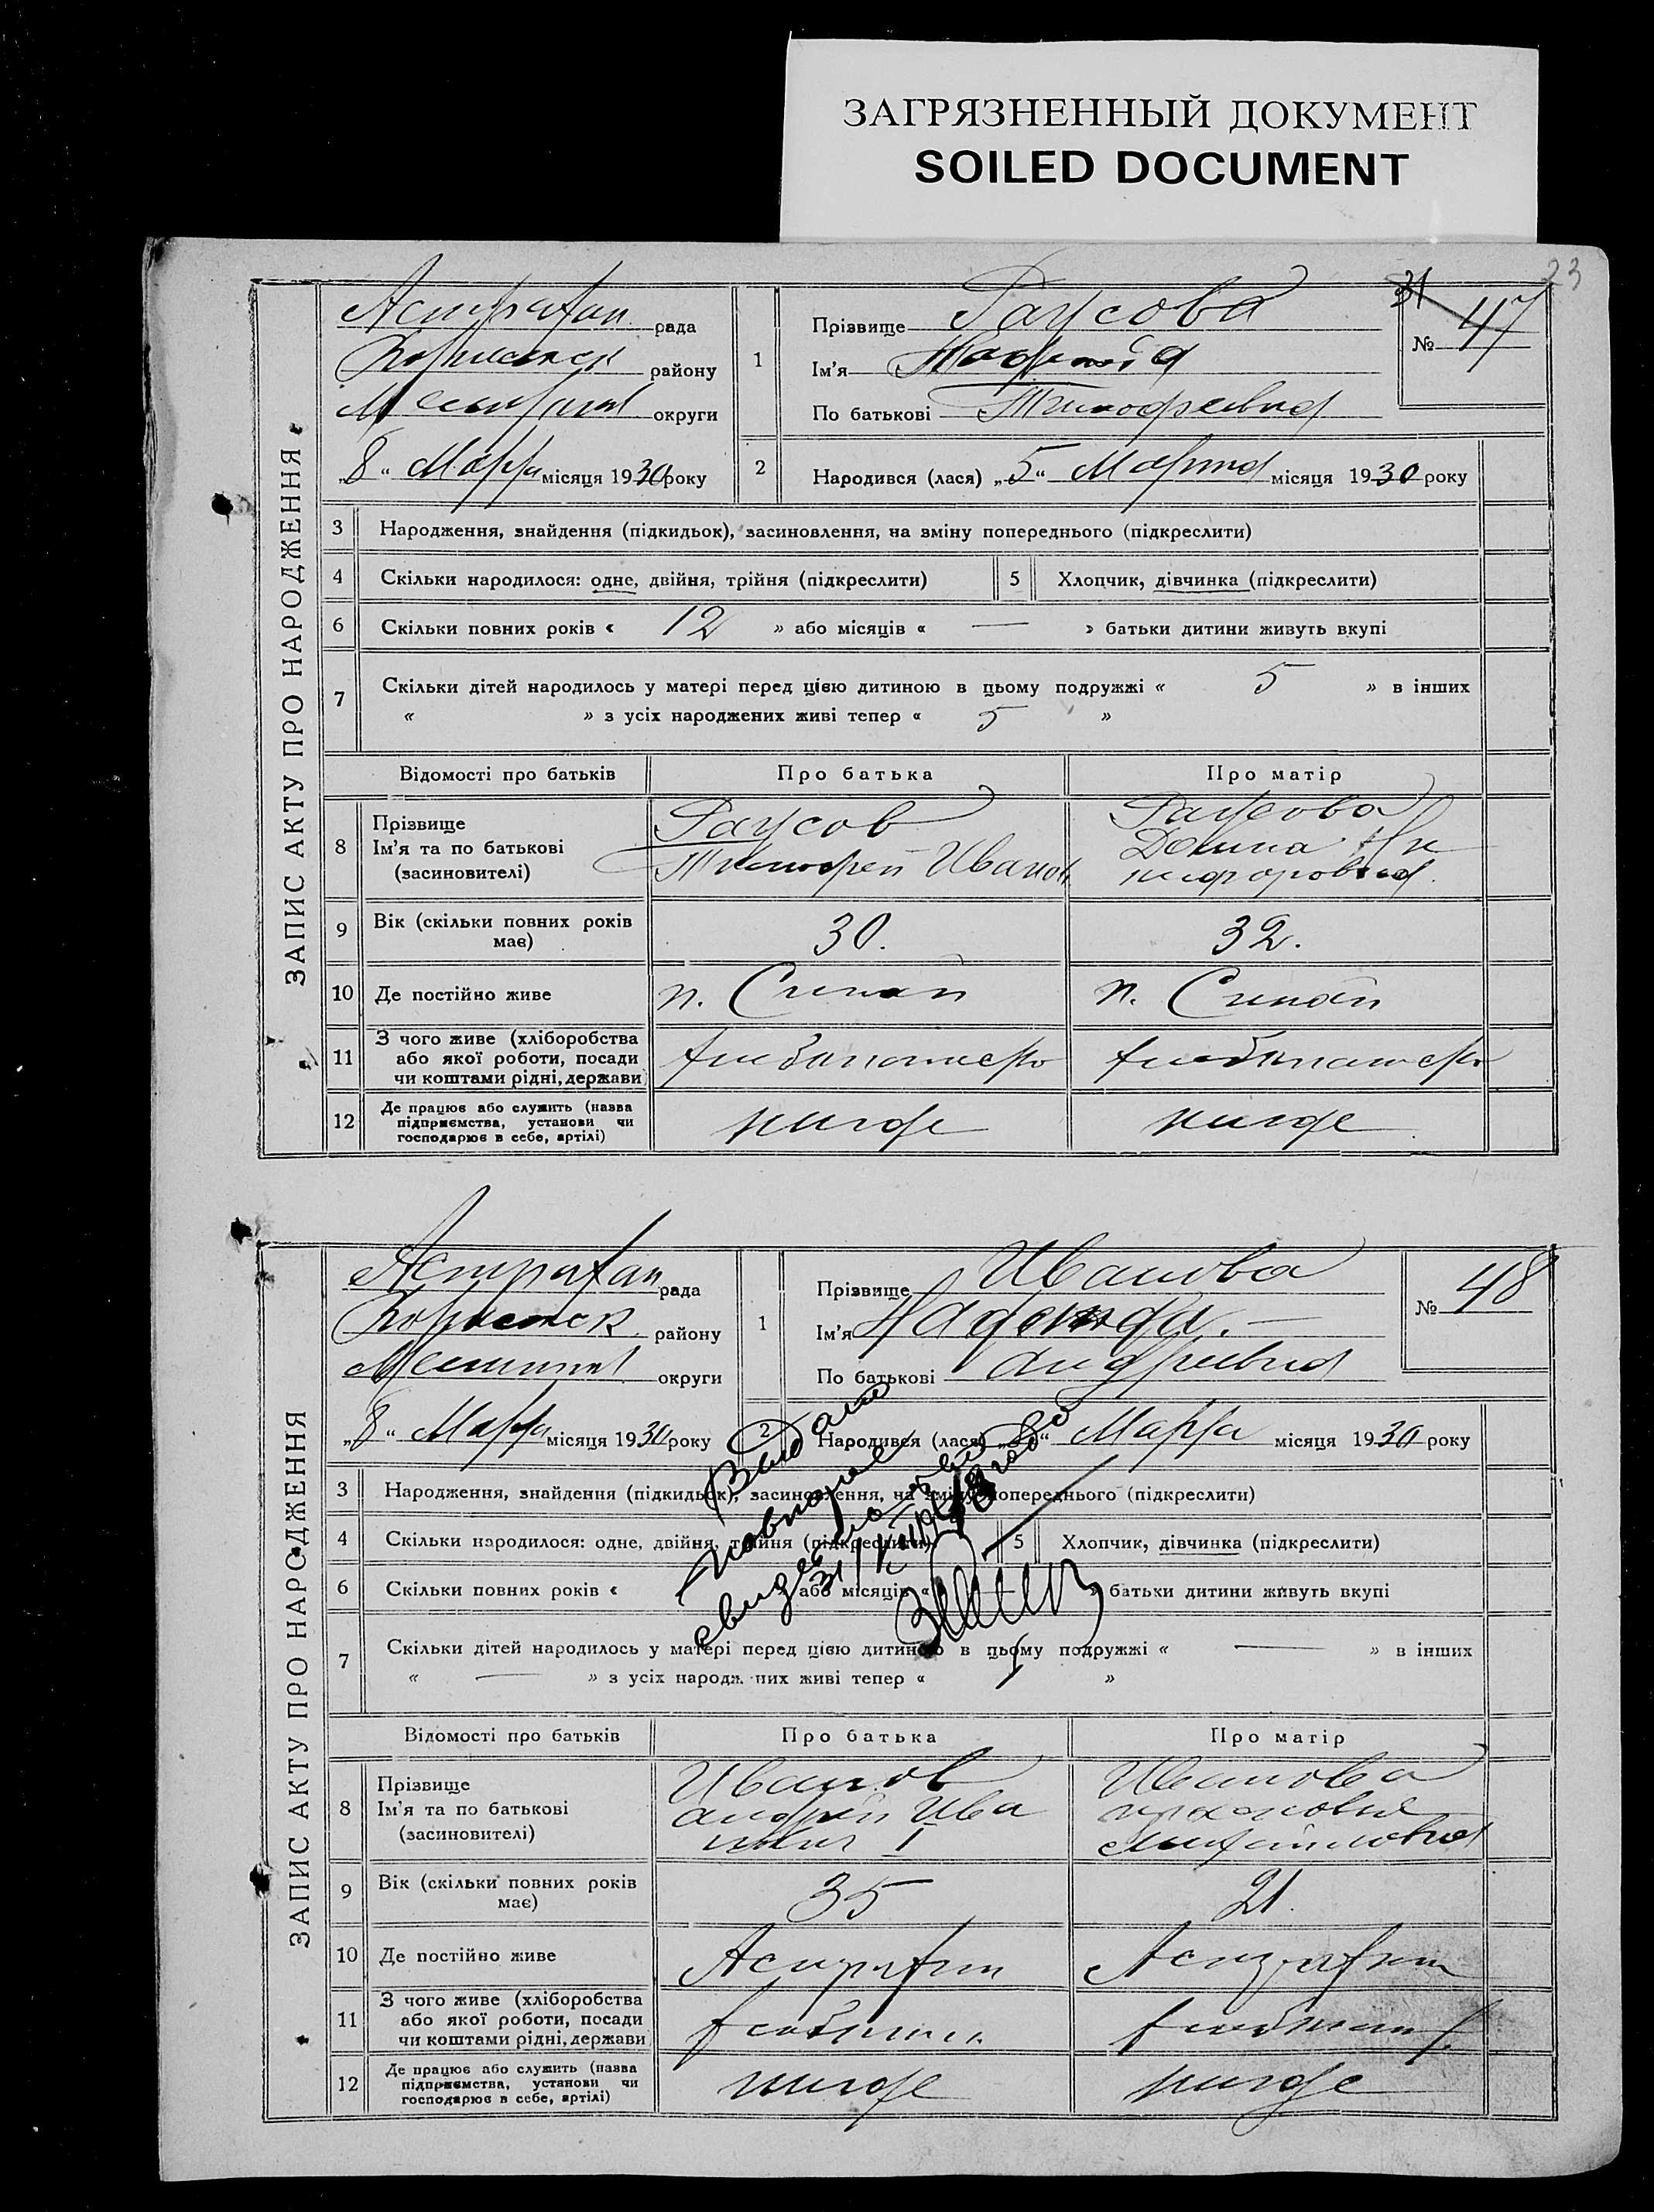 ЗАГРЯЗНЕННЫЙ ДОКУМЕНТ
SOILED DOCUMENT
23
ЗАПИС АКТУ ПРО НАРОДЖЕННЯ
Астрахан рада
району
округи
„8“ Марта місяця 1930 року
31
№ 47
1
Прізвище
Ім'я
По батькові Тимофеевна
2
Народився (лася) „5“ Марта місяця 1930 року
3 Народження, знайдення (підкидьок), засиновлення, на зміну попереднього (підкреслити)
4 Скільки народилося: одне, двійня, трійня (підкреслити) 5 Хлопчик, дівчинка (підкреслити)
6 Скільки повних років « 12 » або місяців « — » батьки дитини живуть вкупі
7 Скільки дітей народилось у матері перед цією дитиною в цьому подружжі « 5 » в інших
« » з усіх народжених живі тепер « 5 »
Відомості про батьків Про батька Про матір
8 Прізвище
Ім'я та по батькові
(засиновителі)
Тимофей Иванов
9 Вік (скільки повних років має) 30. 32.
10 Де постійно живе п. п.
11 З чого живе (хліборобства
або якої роботи, посади
чи коштами рідні, держави
12 Де працює або служить (назва
підприємства, установи чи
господарює в себе, артілі)
нигде нигде
ЗАПИС АКТУ ПРО НАРОДЖЕННЯ
Астрахан рада
району
округи
„8“ Марта місяця 1930 року
№ 48
1
Прізвище Иванова
Ім'я Надежда. —
По батькові Андреевна
2
Народився (лася) Марта місяця 1930 року
Видано
повторное
3 Народження, знайдення (підкидьок), засиновлення, на зміну попереднього (підкреслити)
4 Скільки народилося: одне, двійня, трійня (підкреслити) 5 Хлопчик, дівчинка (підкреслити)
6 Скільки повних років « » або місяців « » батьки дитини живуть вкупі
7 Скільки дітей народилось у матері перед цією дитиною в цьому подружжі « — » в інших
« — » з усіх народжених живі тепер « »
Відомості про батьків Про батька Про матір
8 Прізвище
Ім'я та по батькові
(засиновителі)
Иванов
Андрей Ива
Иванова
Михайловна
9 Вік (скільки повних років має) 35 21.
10 Де постійно живе Астрахан Астрахан
11 З чого живе (хліборобства
або якої роботи, посади
чи коштами рідні, держави
12 Де працює або служить (назва
підприємства, установи чи
господарює в себе, артілі)
нигде нигде